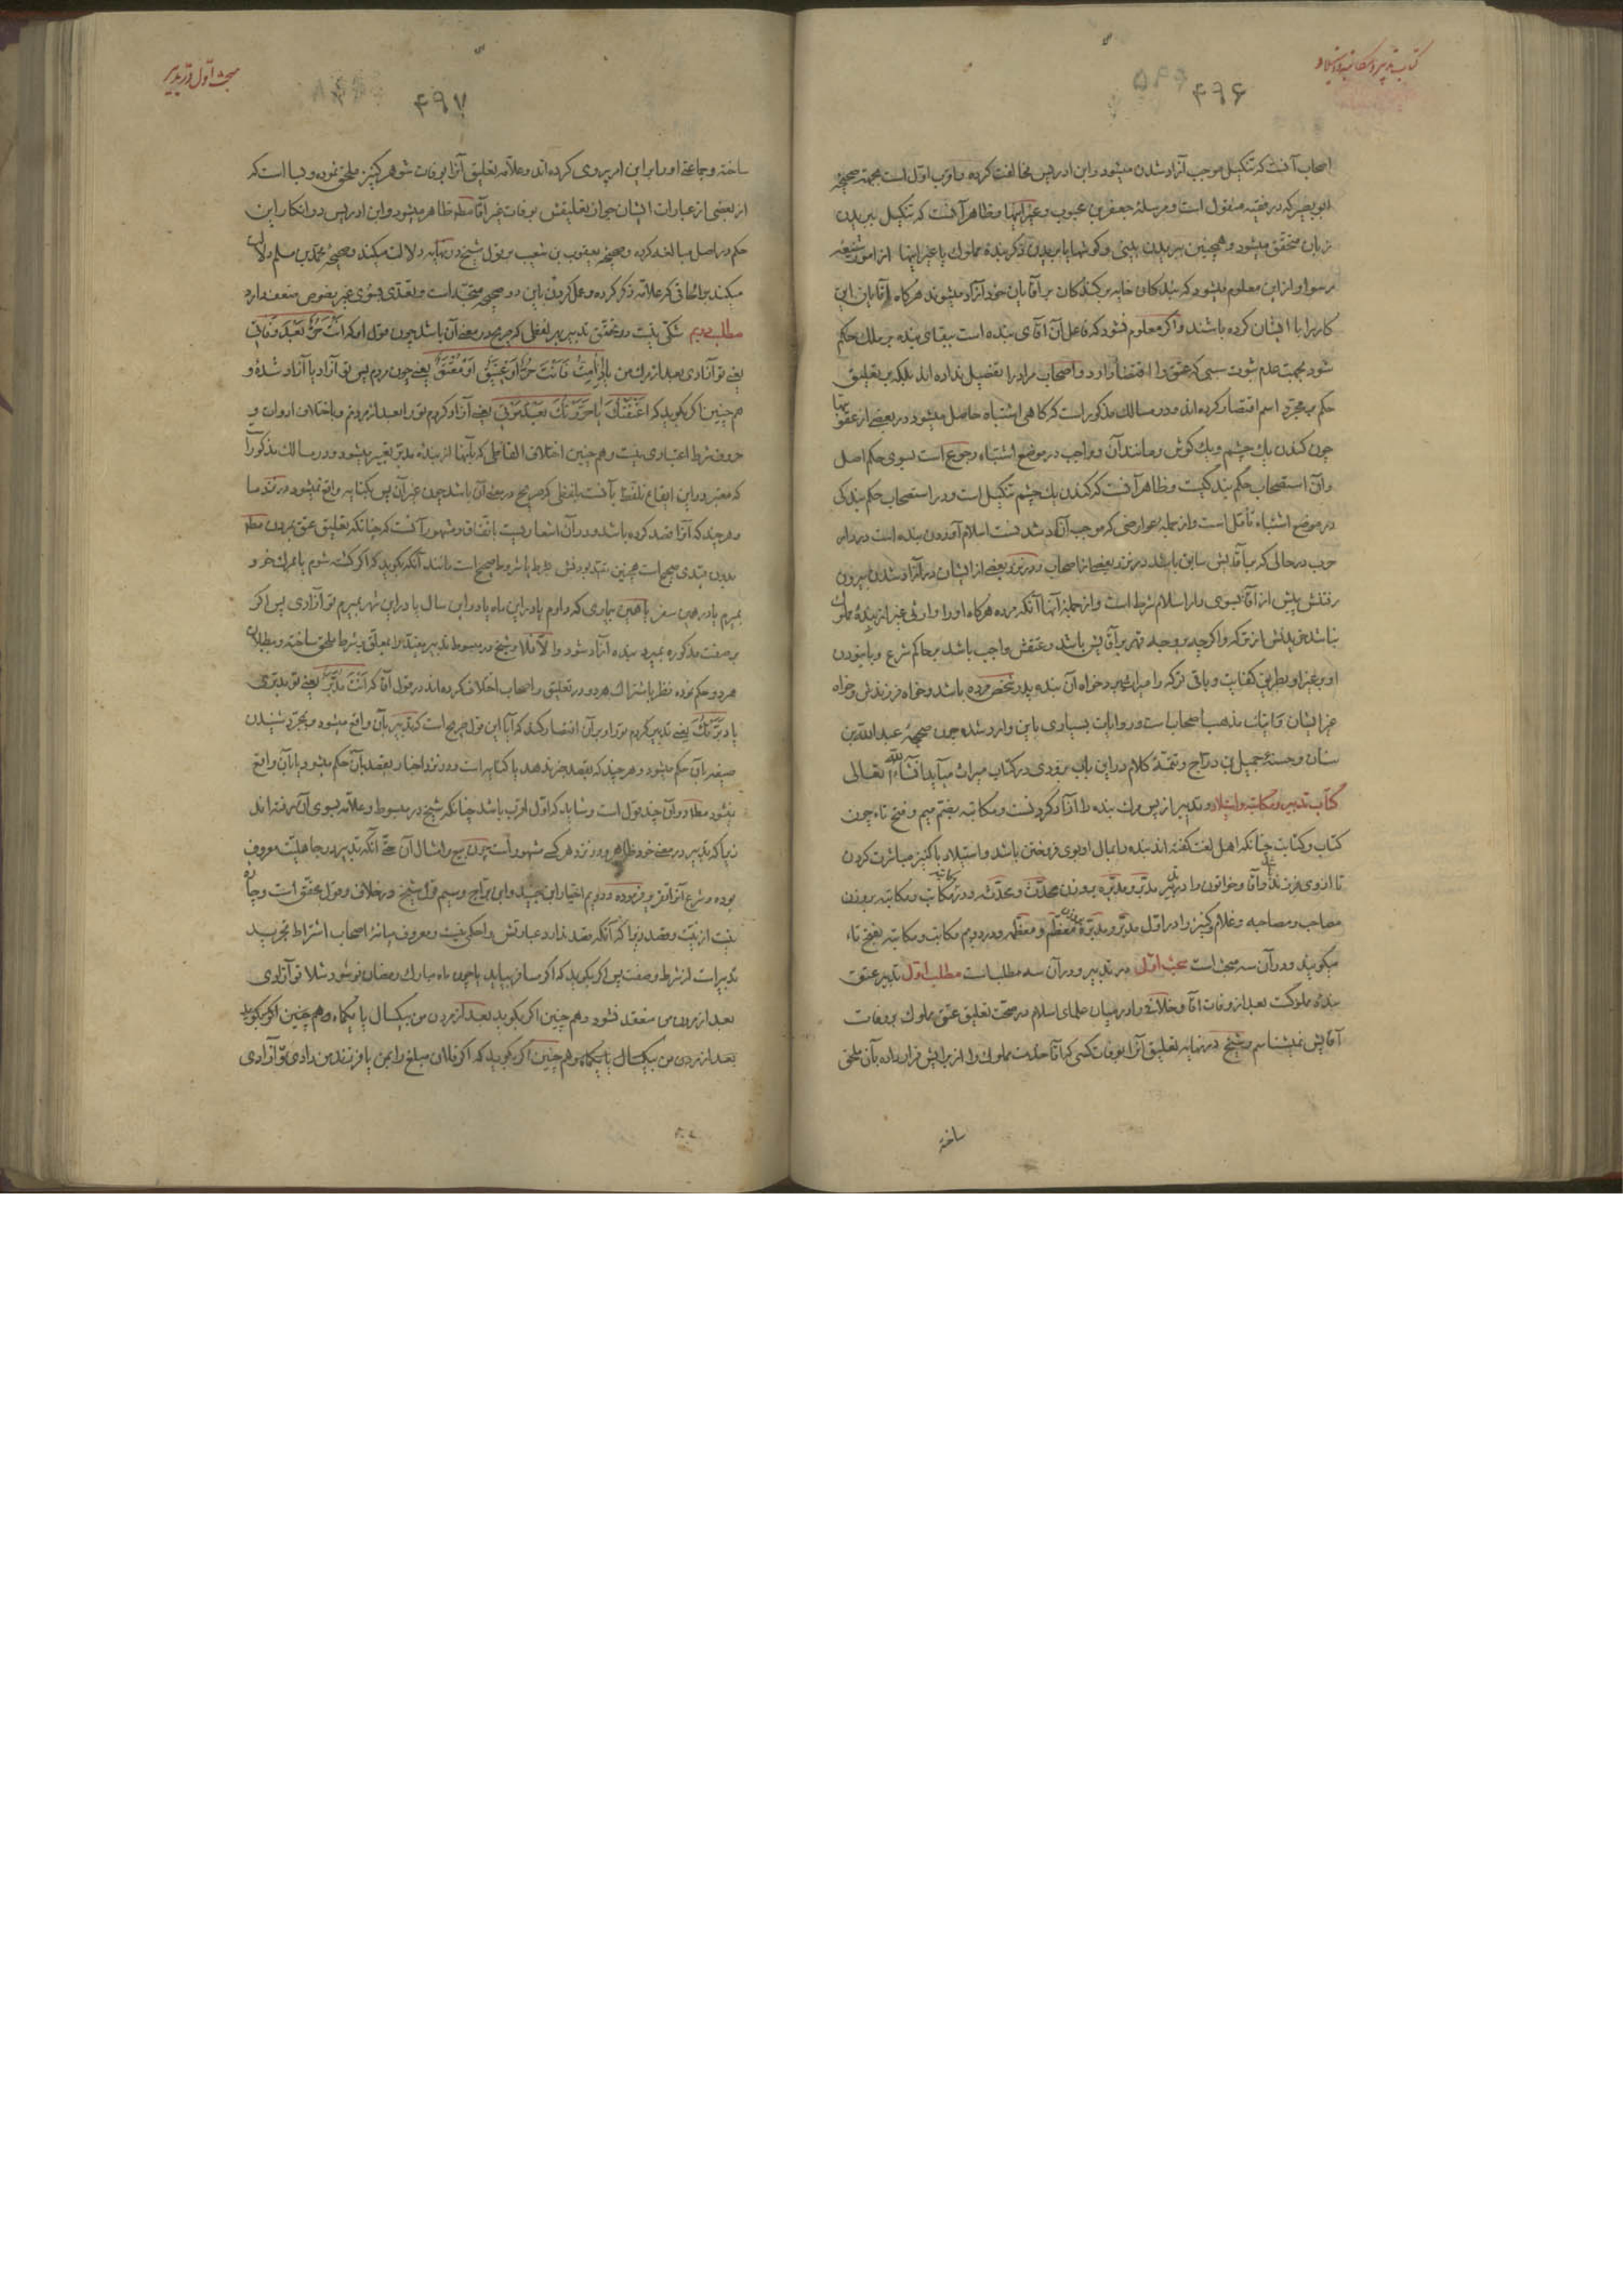 کتاب تدبیر و مکاتبه و استیلاد
۴۹۶
اصحاب آنست که تنکیل موجب آزاد شدن میشود و ابن ادریس مخالفت کرده و اقرب اول است بجهته صحیحهٔ
ابو بصیر که در فقیه منقول است و مرسلهٔ جعفر بن محبوب و غیر اینها و ظاهر آنست که تنکیل ببریدن
زبان متحقق میشود و همچنین ببریدن بینی و گوشها یا بریدن ذکر بندهٔ مملوک یا غیر اینها از امور شنیعه
رسوا و از این معلوم میشود که
کار را با ایشان کرده باشند و اگر معلوم نشود که فاعل آن آقای بنده است ببقای بنده بر ملک حکم
شود بجهت عدم ثبوت سببی که عتق را اقتضا آورد و اصحاب مراد را تفصیل نداده اند بلکه به تعلیق
حکم به مجرد اسم اقتصار کرده اند و در مسالک مذکور است که گاهی اشتباه حاصل میشود در بعضی از عقوبتها
چون کندن یک چشم و یک گوش و مانند آن و واجب در موضع اشتباه رجوع است بسوی حکم اصل
و آن استصحاب حکم بندگیست و ظاهر آنست که کندن یک چشم تنکیل است و در استصحاب حکم بندگی
در موضع اشتباه تأمل است و از جمله عوارضی که موجب آزاد شدنست اسلام آوردن بنده است در دار
حرب در حالی که بر آقایش سابق باشد در نزد بعضی از اصحاب و در نزد بعضی از ایشان در آزاد شدن بیرون
رفتنش پیش از آقا بسوی دار اسلام شرط است و از جمله آنها آنکه مرده هر گاه او را وارثی غیر از بندهٔ مملوک
نباشد
او بغیر او بطریق کفایت و باقی ترکه را میراث میبرد خواه آن بنده پدر شخص مرده باشد و خواه فرزندش و خواه
غیر ایشان و اینک مذهب اصحاب است و روایات بسیاری باین وارد شده چون صحیحهٔ عبد الله بن
سنان و حسنهٔ جمیل بن دراج و تتمهٔ کلام در این باب بزودی در کتاب میراث میآید انشاء الله تعالی
کتاب تدبیر و مکاتبه و استیلاد و تدبیر از پس مرگ بنده را آزاد کردنست و مکاتبه بضم میم و فتح تاء چون
کتاب و کتابت چنانکه اهل لغت گفته اند بنده را بمال او بوی فروختن باشد و استیلاد با کنیز مباشرت کردن
تا از وی فرزند
مصاحب و مصاحبه و غلام و کنیز را در اول مدبَّر و مدبَّره بوزن معظَّم و معظَّمه و در دویم مکاتب و مکاتبه بفتح تاء
میگویند و در آن سه مبحث است مبحث اول در تدبیر و در آن سه مطلب است مطلب اول تدبیر عتق
بندهٔ مملوکست بعد از وفات آقا و خلافی را در میان علمای اسلام در صحت تعلیق عتق مملوک بر وفات
آقایش نمیشناسم و شیخ در نهایه تعلیق آنرا بوفات کسی که آقا خدمت مملوک را از برایش قرار داده بآن ملحق
ساخته
مبحث اول در تدبیر
۴۹۷
ساخته و جماعتی او را بر این امر پیروی کرده اند و علامه تعلیق آنرا بوفات شوهر کنیز ملحق نموده و بسا است که
از بعضی از عبارات ایشان جواز تعلیقش بوفات غیر آقا مطلقا ظاهر میشود و ابن ادریس در انکار این
حکم در اصل مبالغه کرده و صحیحهٔ یعقوب بن شعیب بر قول شیخ در نهایه دلالت میکند و صحیحهٔ محمد بن مسلم دلالت
میکند بر الحاقی که علامه ذکر کرده و عمل کردن باین دو صحیحه متجه است و تعدی بسوی غیر منصوص ضعف دارد
مطلب دویم شکی نیست در تحقق تدبیر بهر لفظی که صریح در معنی آن باشد چون قول او که اَنْتَ حُرٌّ بَعْدَ وَفَاتِی
یعنی تو آزادی بعد از مرگ من یا اِذَا مِتُّ فَاَنْتَ حُرٌّ اَوْ عَتِیقٌ اَوْ مُعْتَقٌ یعنی چون مردم پس تو آزاد یا آزاد شدهٔ و
هم چنین اگر بگوید که اَعْتَقْتُکَ یا حَرَّرْتُکَ بَعْدَ مَوْتِی یعنی آزاد کردم تو را بعد از مردنم و باختلاف ادوات و
حروف شرط اعتباری نیست و هم چنین اختلاف الفاظی که بآنها از بندهٔ مدبر تعبیر میشود و در مسالک مذکور است
که معتبر در این ایقاع تلفظ بآنست بلفظی که صریح در معنی آن باشد چون غیر آن پس بکنایه واقع نمیشود در نزد ما
و هر چند که آنرا قصد کرده باشد
بدون قیدی صحیح است همچنین
بمیرم یا در همین سفر یا همین بیماری که دارم یا در این ماه یا در این سال یا در این شهر بمیرم تو آزادی پس اگر
بر صفت مذکوره بمیرد بنده آزاد شود و الا فلا و شیخ در مبسوط تدبیر مقید را بمعلق بشرط ملحق ساخته و ببطلان
هر دو حکم نموده نظر باشتراک هر دو در تعلیق و اصحاب اختلاف کرده اند در قول آقا که اَنْتَ مُدَبَّرٌ یعنی تو مدبری
یا دَبَّرْتُکَ یعنی تدبیر کردم تو را و بر آن اقتصار کند که آیا این قول صریح است که تدبیر بآن واقع میشود و بمجرد شنیدن
صیغه بآن حکم میشود و هر چند که بقصد خبر ندهد یا کنایه است
نمیشود مطلقا و در آن چند قول است و شاید که اول اقرب باشد چنانکه شیخ در مبسوط و علامه بسوی آن رفته اند
زیرا که تدبیر در معنی خود ظاهر و در نزد هر کس مشهور است چون بیع و امثال آن حتی آنکه تدبیر در جاهلیت معروف
بوده و شرع آنرا تقریر فرموده و دویم اختیار ابن جنید و ابن براج و سیم قول شیخ در خلاف و قول محقق است و چاره
نیست از نیت و قصد زیرا که آنکه قصد ندارد عبارتش را حکمی نیست و معروف میانهٔ اصحاب اشتراط تجرید
تدبیر است از شرط و صفت پس اگر بگوید که اگر مسافر بیاید یا چون ماه مبارک رمضان نو شود مثلا تو آزادی
بعد از مردن من منعقد نشود و هم چنین اگر بگوید بعد از مردن من بیکسال یا یکماه و هم چنین اگر بگوید
بعد از مردن من بیکسال یا یکماه و هم چنین اگر بگوید که اگر فلان مبلغ را بمن یا فرزند من دادی تو آزادی